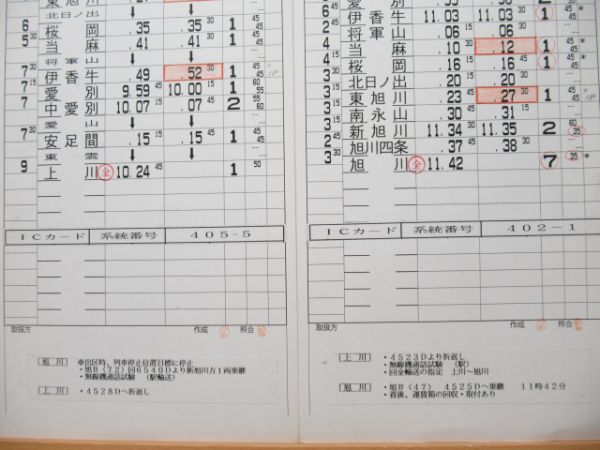 東旭川
北日ノ出 ↓
6 桜岡 .35 .35 30 1 45
5 当麻 .41 .41 30 1 45
将軍山 ↓ ↓
7 30 伊香牛 .49 .52 30 1 45 45
7 15 愛別 9.59 45 10.00 15 1 60 55
7 中愛別 10.07 .07 45 2 60
愛山 ↓ ↓
7 30 安足間 .15 .15 45 1 45
東雲 ↓
9 上川 全 10.24 45 1 50
ICカード 系統番号 405-5
取扱方 作成 照合
旭川 車出区時、列車停止位置目標に停止
・旭B(72)回6540Dより新旭川方1両兼継
・無線機通話試験 (駅輸送)
上川 ・4528Dへ折返し
愛別
6 伊香牛 11.03 11.03 30 1 45
2 将軍山 .06 .06
4 当麻 .10 .12 1 45
4 桜岡 .16 .16 45 1 45
3 北日ノ出 .20 .20 30
3 東旭川 .23 45 .27 30 1 45
3 南永山 .30 .31
2 30 新旭川 11.34 11.35 2 60 35
2 30 旭川四条 .37 45 .38 30
3 旭川 全 11.42 7 35
ICカード 系統番号 402-1
取扱方 作成 照合
上川 ・4523Dより折返し
・無線機通話試験 (駅)
・回金輸送の指定 上川~旭川
旭川 ・旭B(47) 4525Dへ兼継 11時42分
・着後、運賃箱の回収・取付あり